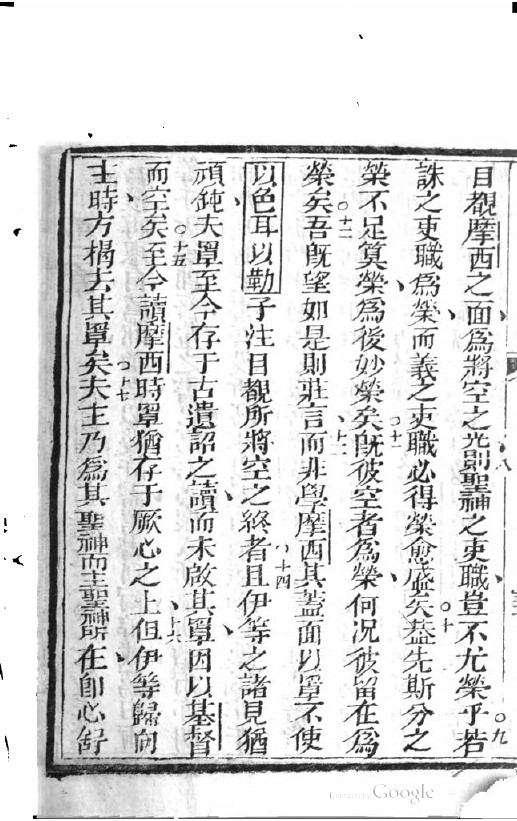 目覩摩西之面爲將空之光則聖神之吏職豈不尤榮乎若○九
誅之吏職爲榮而義之吏職必得榮愈盛矣○十蓋先斯分之
榮不足算榮爲後妙榮矣○十一既彼空者爲榮何況彼留在爲
榮矣○十二吾既望如是則莊言而非學○十三摩西其蓋面以罩不使
以色耳以勒子注目覩所將空之終者○十四且伊等之諸見猶
頑鈍夫罩至今存于古遺詔之讀而未啟其罩因以基督
而空矣○十五至今讀摩西時罩猶存于厥心之上○十六但伊等歸向
主時方揭去其罩矣○十七夫主乃爲其聖神而主聖神所在卽心舒
Digitized by Google